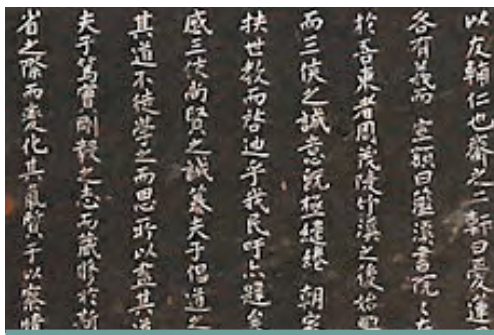 以友輔仁也齋之二軒曰愛蓮
各有義而室額曰藍溪書院
於吾東者周茂陵竹溪之後始
而三侯之誠意旣極繾綣朝家
扶世敎而啓迪乎我民吁亦韙矣
感三侯尚賢之誠慕夫子倡道之
其道不徒學之而思所以盡其道
夫子篤實剛毅之志而藏修於斯
省之際而變化其氣質于以察情